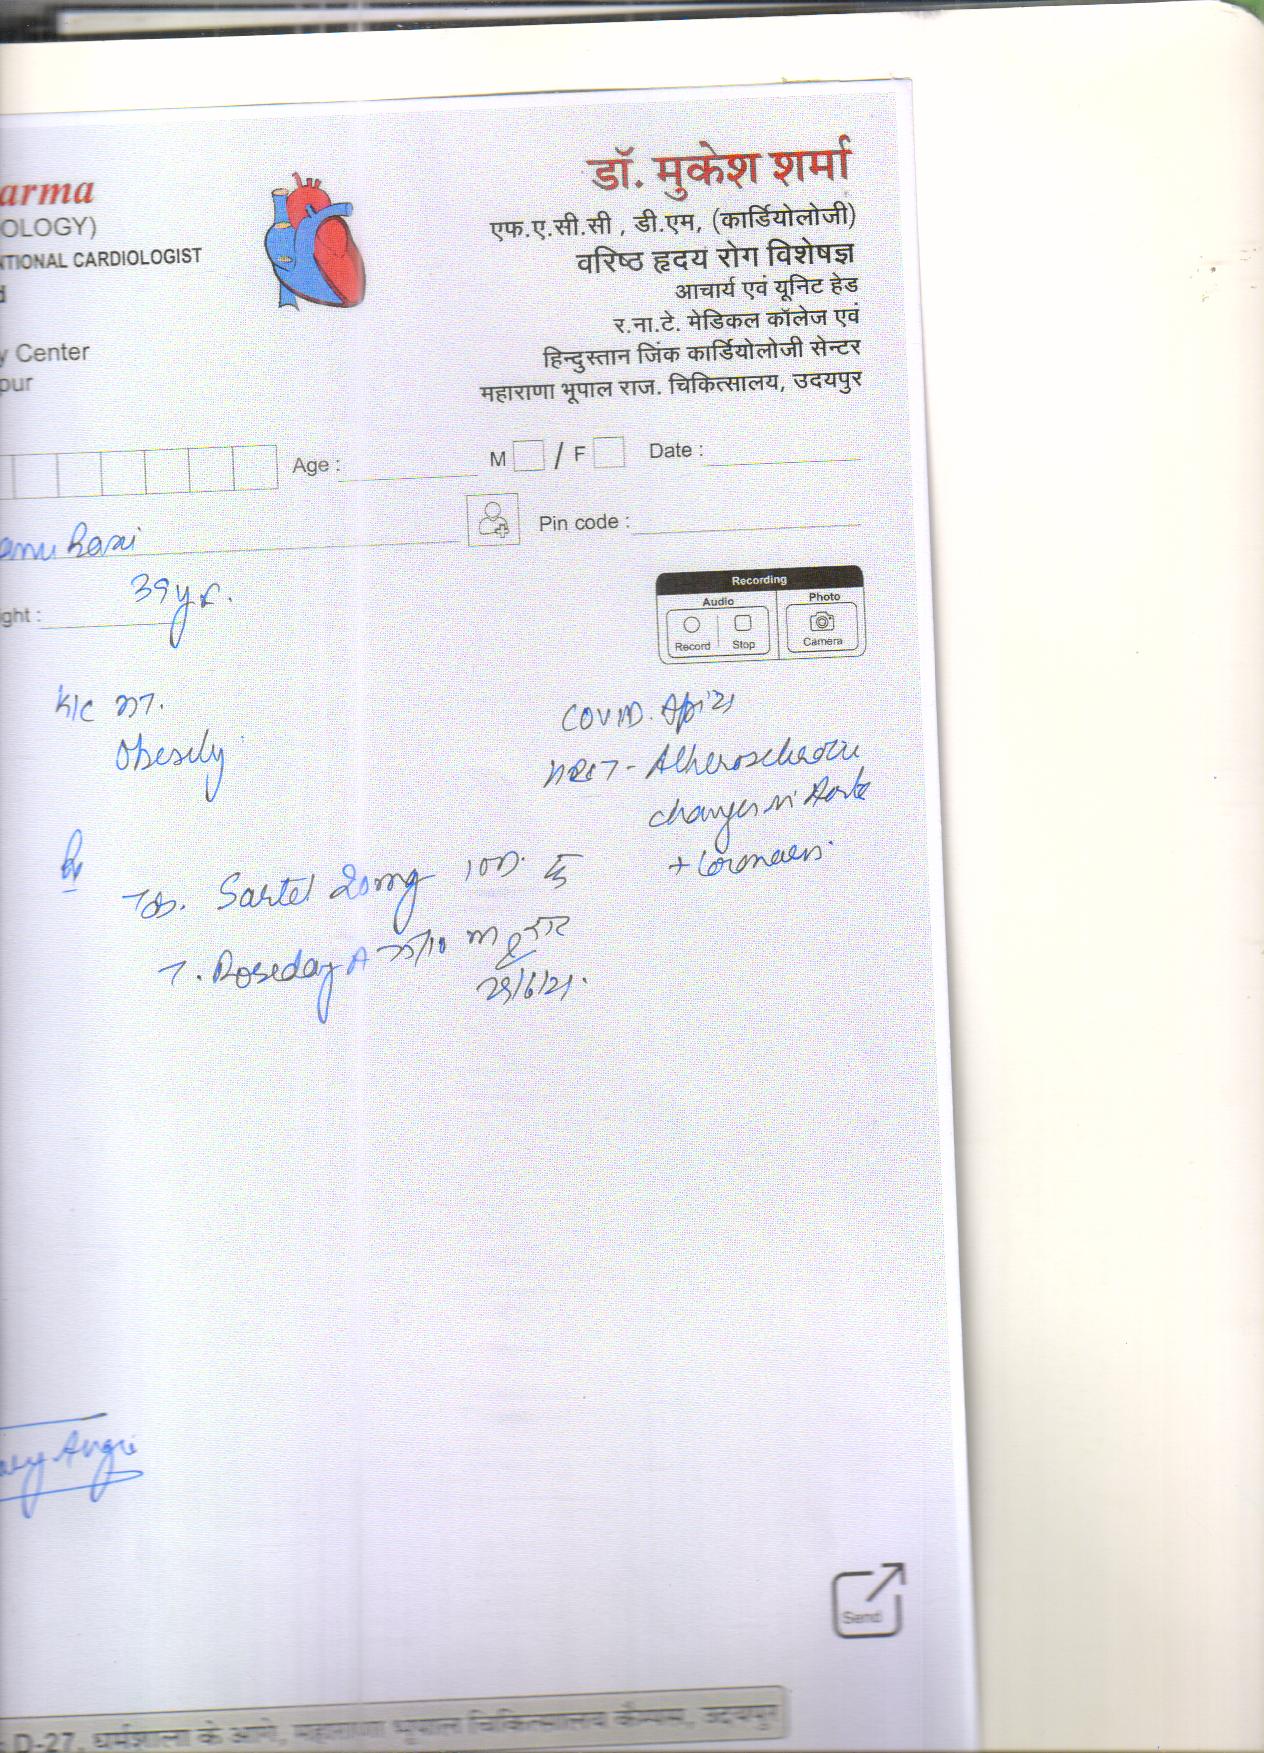 arma
OLOGY)
NTIONAL CARDIOLOGIST
d
y Center
pur
डॉ. मुकेश शर्मा
एफ.ए.सी.सी , डी.एम, (कार्डियोलोजी)
वरिष्ठ हृदय रोग विशेषज्ञ
आचार्य एवं यूनिट हेड
र.ना.टे. मेडिकल कॉलेज एवं
हिन्दुस्तान जिंक कार्डियोलोजी सेन्टर
महाराणा भूपाल राज. चिकित्सालय, उदयपुर
Age : M / F Date :
Pin code :
39yr.
ght :
Recording
Audio Photo
Record Stop Camera
K/C
Obesity
COVID. Apr'21
changes in
Tab. Sartel 20mg
T. Roseday A
29/6/21.
Send
D-27, धर्मशाला के आगे, महाराणा भूपाल चिकित्सालय कैम्पस, उदयपुर